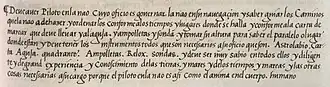 Deue auer Piloto en la nao Cuyo oficio es gouernar la nao en su nauegaçion y saber quitar los Caminos
que la nao a de hazer y ordenar los conforme a los tiempos y lugares donde se halla y conforme a la Carta de
marear que deue lleuar y al aguja. y ampolletas y sonda y tomar su altura para saber el paralelo o lugar
donde estan y deue tener los instrumentos todos que son necesarios a su oficio que son. Astrolabio, Car
ta. Aguja. quadrante. Ampolletas. Relox. sondas. y deue ser muy sabio en todos ellos y diligen
te y de grand experiencia. y Conocimiento de las tierras, y mares y de los tiempos y mareas. y las otras
cosas necesarias a su cargo porque el piloto en la nao es asi Como el anima en el cuerpo humano